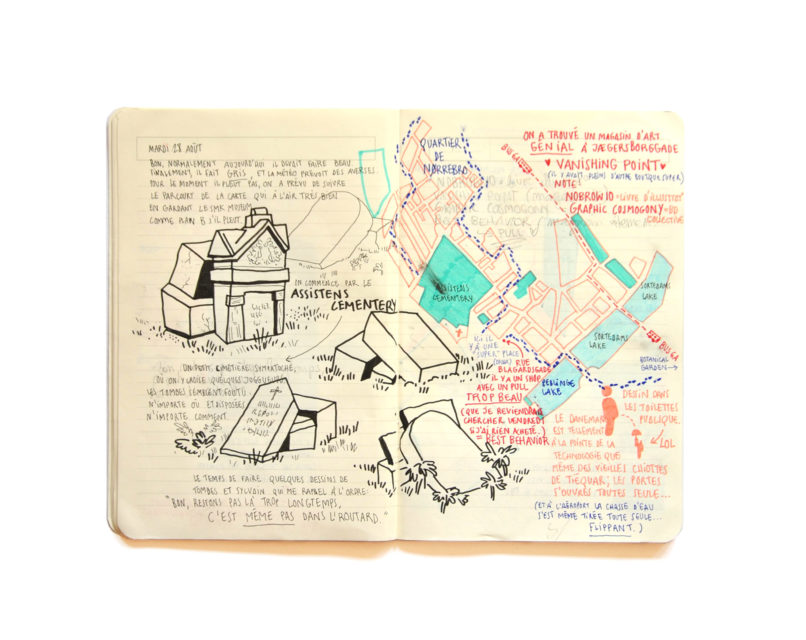 MARDI 28 AOÛT
BON, NORMALEMENT AUJOURD'HUI IL DEVAIT FAIRE BEAU
FINALEMENT, IL FAIT GRIS, ET LA MÉTÉO PRÉVOIT DES AVERSES.
POUR LE MOMENT IL PLEUT PAS, ON A PRÉVU DE SUIVRE
LE PARCOURT DE LA CARTE QUI À L'AIR TRÈS BIEN
EN GARDANT LE SMK MUSEUM
COMME PLAN B S'IL PLEUT.
ON COMMENCE PAR LE
ASSISTENS
CEMENTERY
PETIT CIMETIÈRE SYMPATOCHE,
OÙ ON Y CROISE QUELQUES JOGGUEURS
LES TOMBES SEMBLENT FOUTU
N'IMPORTE OÙ ET DISPOSÉES
N'IMPORTE COMMENT.
LE TEMPS DE FAIRE QUELQUES DESSINS DE
TOMBES ET SYLVAIN QUI ME RAPPEL À L'ORDRE:
"BON, RESTONS PAS LÀ TROP LONGTEMPS,
C'EST MÊME PAS DANS L'ROUTARD."
QUARTIER
DE
NØRREBRO
BUS 6A
ON A TROUVÉ UN MAGASIN D'ART
GENIAL À JÆGERSBORGGADE
♥ VANISHING POINT ♥
(IL Y AVAIT PLEIN D'AUTRE BOUTIQUE SUPER)
NOTE:
NOBROW 10 = LIVRE D'ILLUSTR°
GRAPHIC COSMOGONY = BD
COLLECTIVE
ASSISTENS
CEMENTERY
SORTEDAMS
LAKE
SORTEDAMS
LAKE
BUS 6A
BOTANICAL
GARDEN →
PEBLINGE
LAKE
Y A UNE
"SUPER" PLACE
RUE
BLÅGÅRDSGADE
IL Y A UN SHOP
AVEC UN PULL
TROP BEAU
(QUE JE REVIENDRAIS
CHERCHER VENDREDI
SI J'AI RIEN ACHETÉ.)
= BEST BEHAVIOR
DESTIN DANS
LES TOILETTES
PUBLIQUE.
LOL
LE DANEMARK
EST TELLEMENT
À LA POINTE DE LA
TECHNOLOGIE QUE
MÊME DES VIEILLES CHIOTTES
DE THEQUAR, LES PORTES
S'OUVRES TOUTES SEULE...
(ET À L'AÉROPORT LA CHASSE D'EAU
S'EST MÊME TIRÉE TOUTE SEULE...
FLIPPANT.)